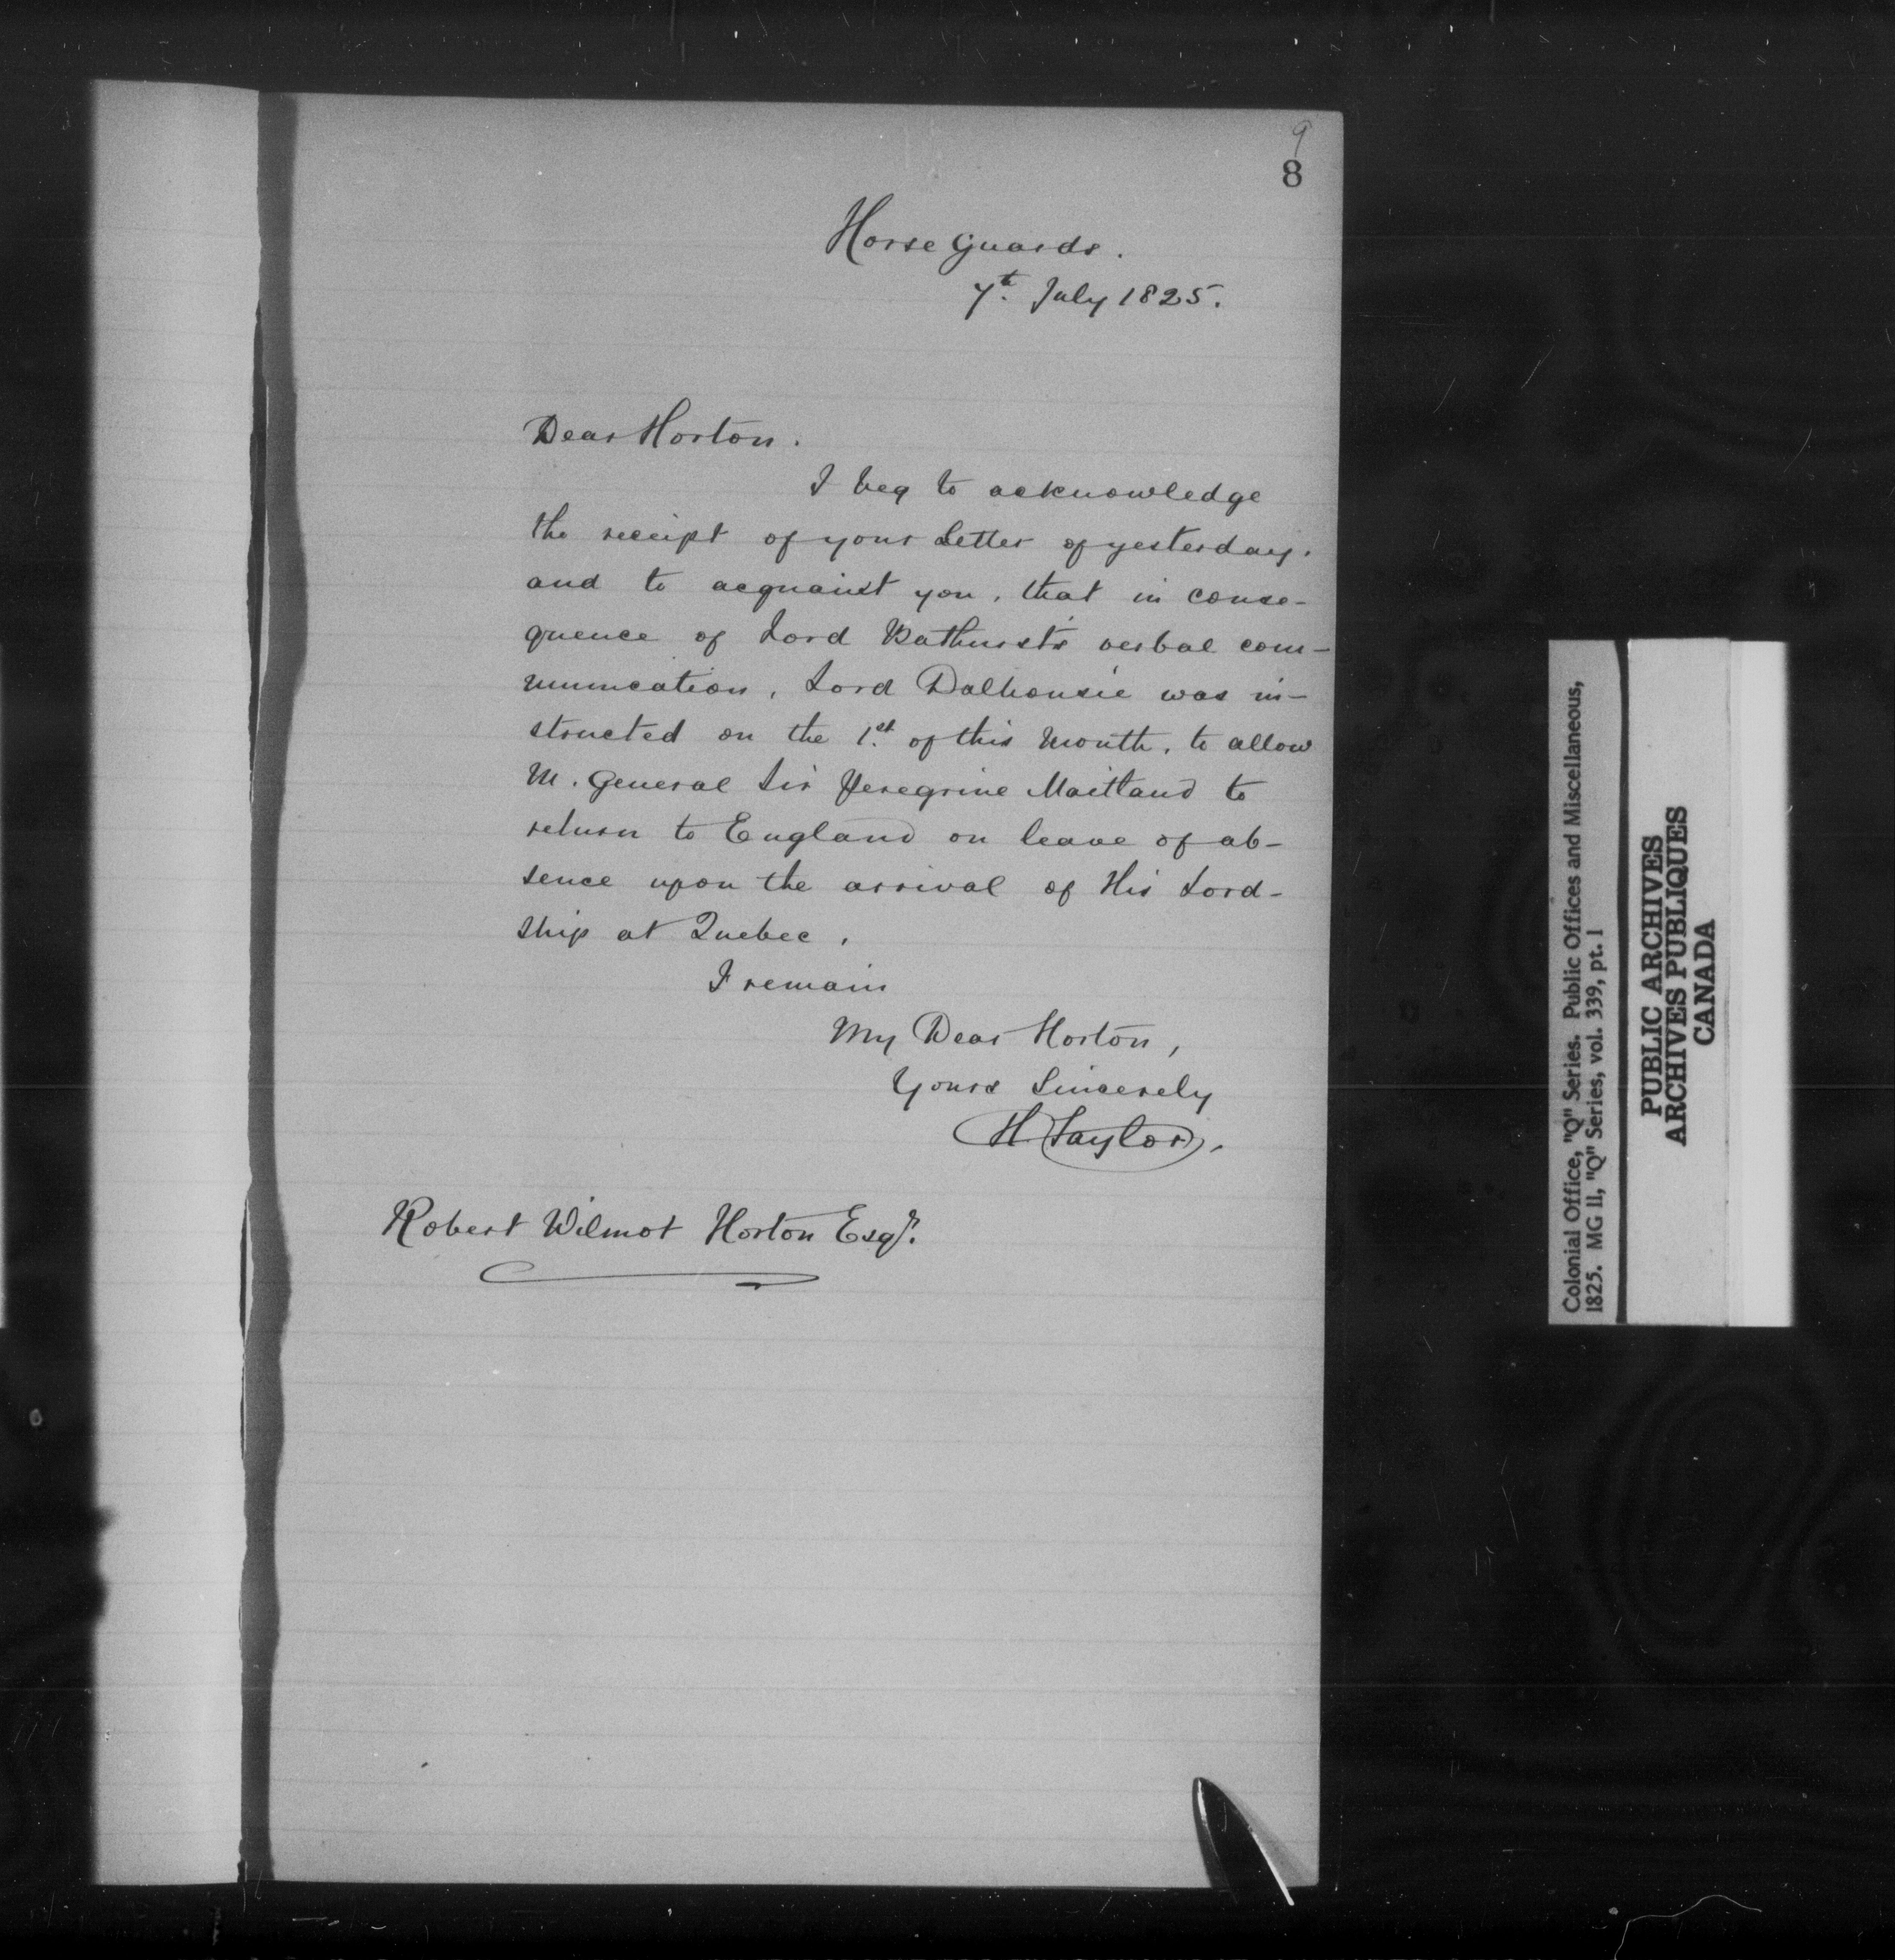 9
8
Horse Guards.
7th. July 1825.
Dear Horton.
I beg to acknowledge
the receipt of your Letter of yesterday.
and to acquaint you, that in conse-
quence of Lord Bathurst's verbal com-
munication, Lord Dalhousie was in-
structed on the 1st. of this Month, to allow
M. General Sir Peregrine Maitland to
return to England on leave of ab-
sence upon the arrival of His Lord-
ship at Quebec.
I remain
My Dear Horton,
Yours Sincerely
H. Taylor.
Robert Wilmot Horton Esqr.
Colonial Office, "Q" Series. Public Offices and Miscellaneous,
1825. MG 11, "Q" Series, vol. 339, pt. 1
PUBLIC ARCHIVES
ARCHIVES PUBLIQUES
CANADA